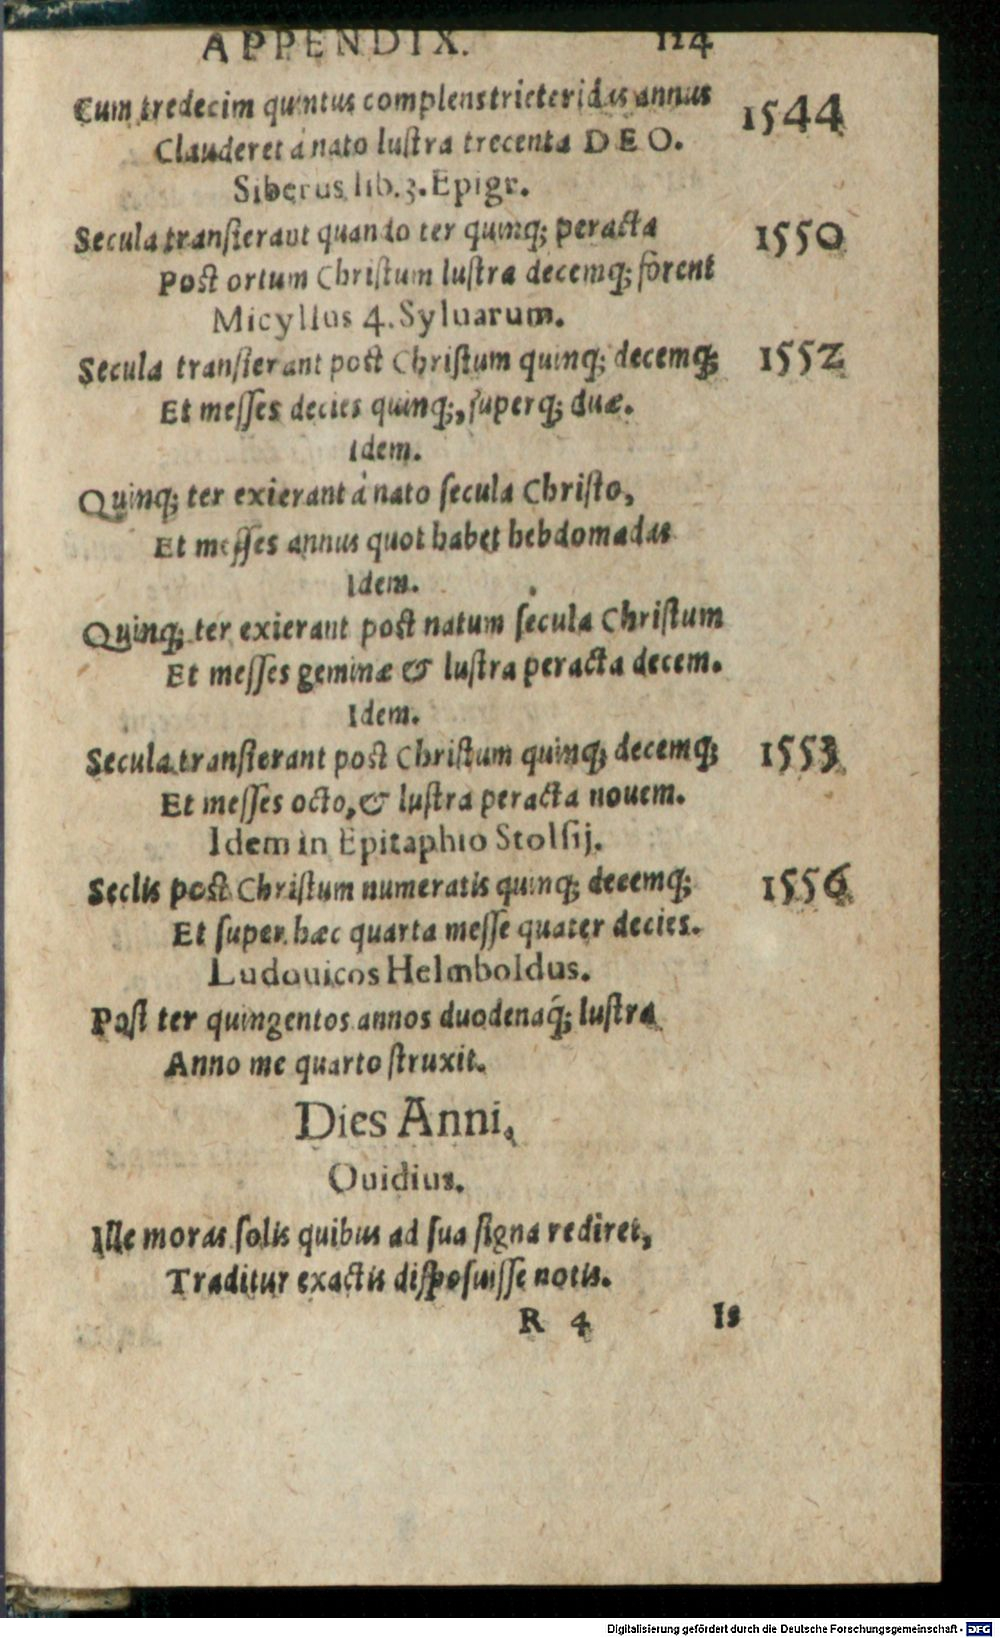 APPENDIX. 124
Cum tredecim quintus complens trieteridas annus 1544
Clauderet à nato luſtra trecenta DEO.
Siberus lib. 3. Epigr.
Secula tranſierant quando ter quinq; peracta 1550
Post ortum Chriſtum luſtra decemq; forent
Micyllus 4. Syluarum.
Secula tranſierant post Chriſtum quinq; decemq; 1552
Et meſſes decies quinq;, ſuperq; duæ.
Idem.
Quinq; ter exierant à nato ſecula Chriſto,
Et meſſes annus quot habet hebdomadas
Idem.
Quinq; ter exierant post natum ſecula Chriſtum
Et meſſes geminæ & luſtra peracta decem.
Idem.
Secula tranſierant post Chriſtum quinq; decemq; 1553
Et meſſes octo, & luſtra peracta nouem.
Idem in Epitaphio Stolſij.
Seclis post Chriſtum numeratis quinq; decemq; 1556
Et ſuper hæc quarta meſſe quater decies.
Ludouicos Helmboldus.
Poſt ter quingentos annos duodenaq́; luſtra
Anno me quarto ſtruxit.
Dies Anni.
Ouidius.
Ille moras ſolis quibus ad ſua ſigna rediret,
Traditur exactis diſpoſuiſſe notis.
R 4 Is
Digitalisierung gefördert durch die Deutsche Forschungsgemeinschaft - DFG